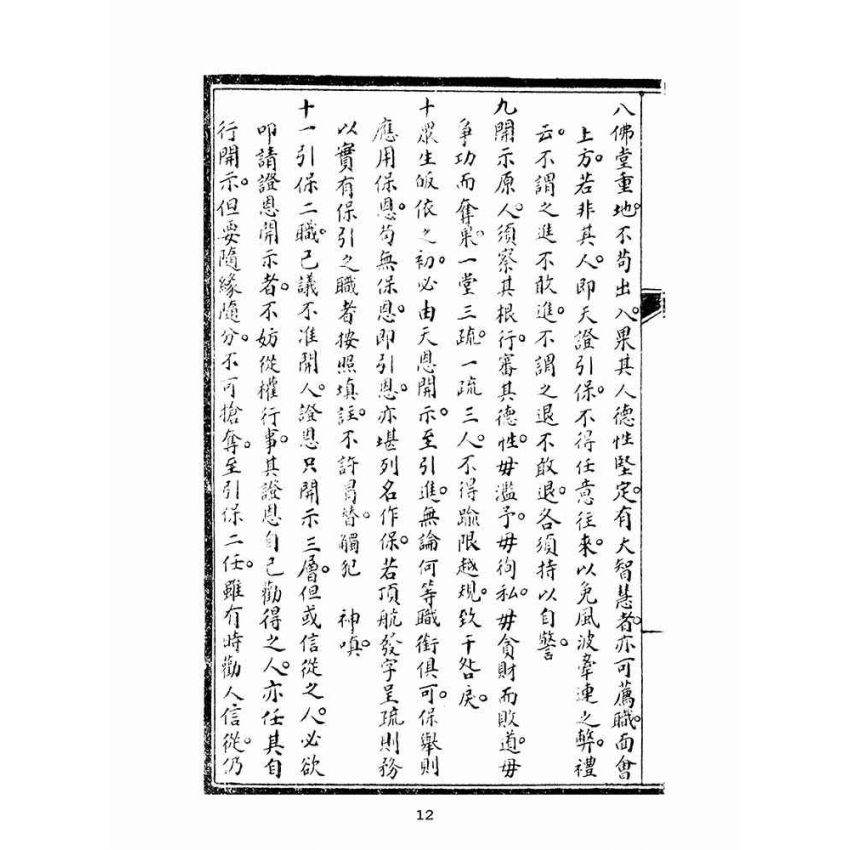 八佛堂重地。不苟出入。果其人德性堅定。有大智慧者。亦可薦職。面會
上方。若非其人。即天證引保。不得任意往來。以免風波牽連之弊。禮
云。不謂之進不敢進。不謂之退不敢退。各須持以自警。
九開示原人。須察其根行。審其德性。毋濫予。毋徇私。毋貪財而敗道。毋
爭功而奪果。一堂三疏。一疏三人。不得踰限越規。致干咎戾。
十眾生皈依之初。必由天恩開示。至引進。無論何等職銜俱可。保舉則
應用保恩。苟無保恩。即引恩。亦堪列名作保。若頂航發字呈疏則務
以實有保引之職者按照填註。不許冒替。觸犯　神嗔。
十一引保二職。已議不准開人。證恩只開示三層。但或信從之人。必欲
叩請證恩開示者。不妨從權行事。其證恩自己勸得之人。亦任其自
行開示。但要隨緣隨分。不可搶奪。至引保二任。雖有時勸人信從。仍
12